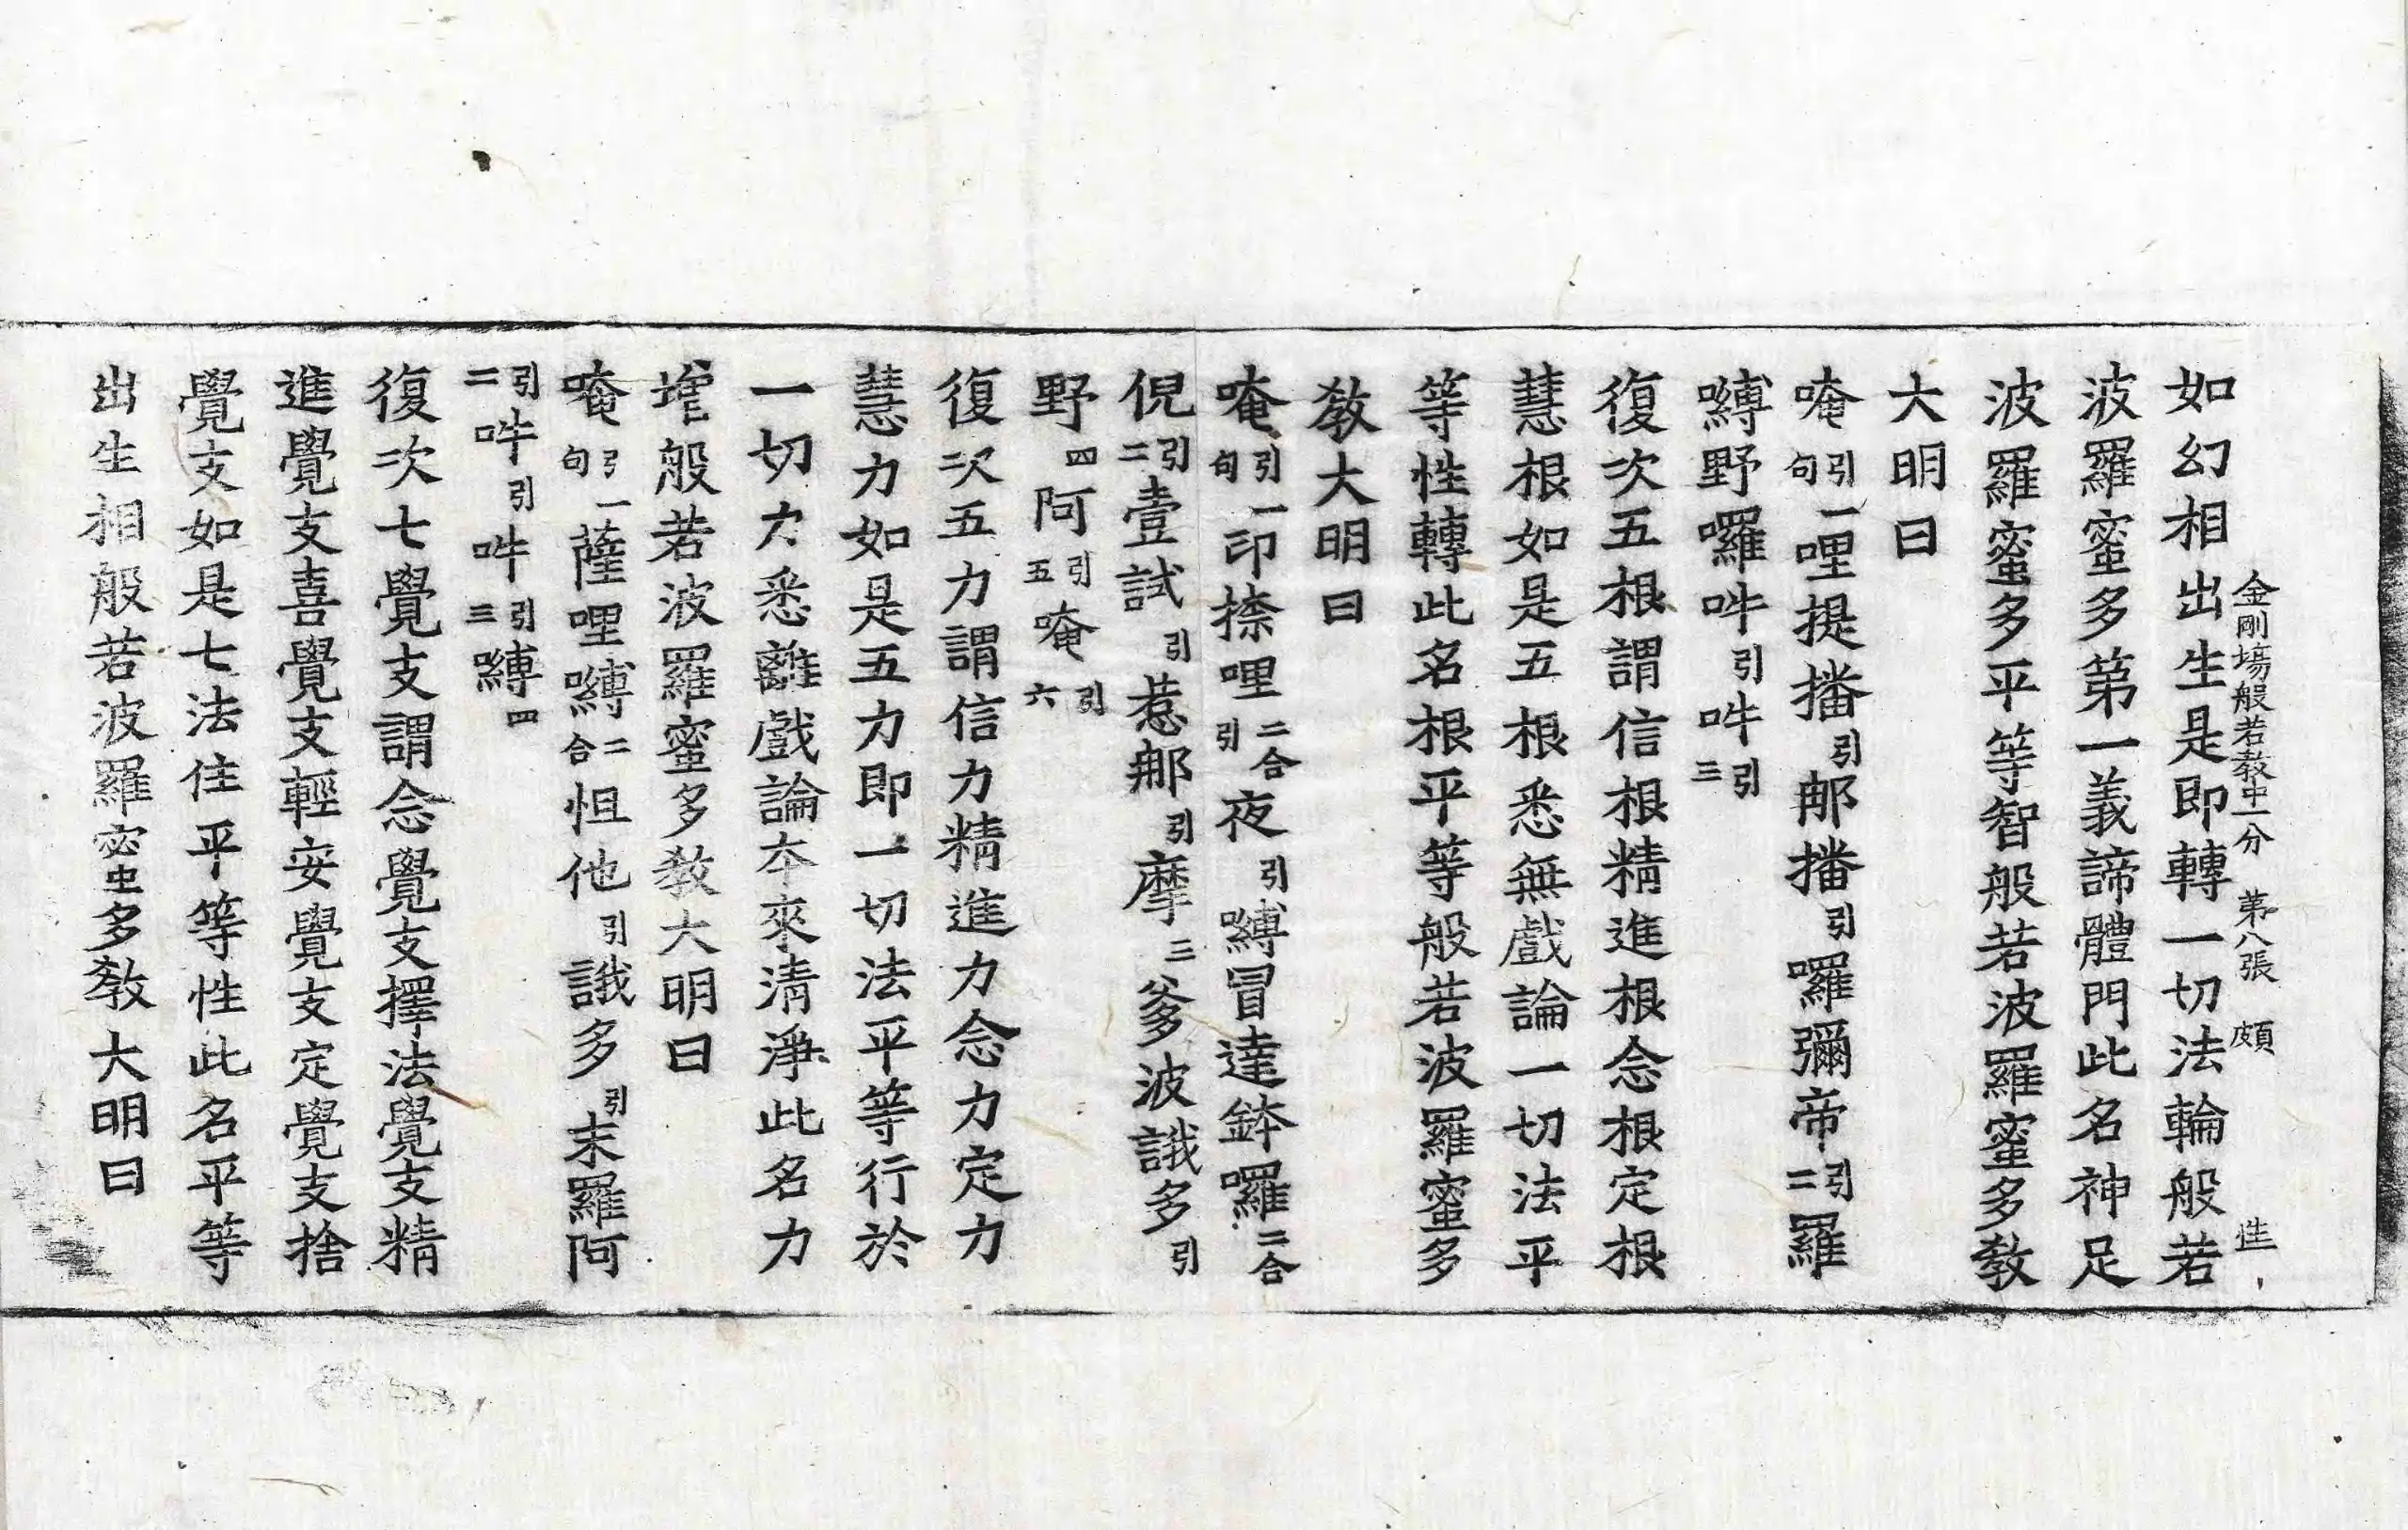 金剛場般若教中一分 第八張 頗
如幻相出生是即轉一切法輪般若
波羅蜜多第一義諦體門此名神足
波羅蜜多平等智般若波羅蜜多教
大明曰
唵引一句哩提播引那播引囉彌帝引二羅
嚩野囉吽引吽引三
復次五根謂信根精進根念根定根
慧根如是五根悉無戲論一切法平
等性轉此名根平等般若波羅蜜多
教大明曰
唵引一句印捺哩二合引夜引嚩冒達鉢囉二合
倪引二壹試引惹那引摩三爹波誐多引
野四阿引五唵引六
復次五力謂信力精進力念力定力
慧力如是五力即一切法平等行於
一切力悉離戲論本來清淨此名力
增般若波羅蜜多教大明曰
唵引一句薩哩嚩二合怛他引誐多引末羅阿
引二吽引吽引三嚩四
復次七覺支謂念覺支擇法覺支精
進覺支喜覺支輕安覺支定覺支捨
覺支如是七法住平等性此名平等
出生相般若波羅蜜多教大明曰